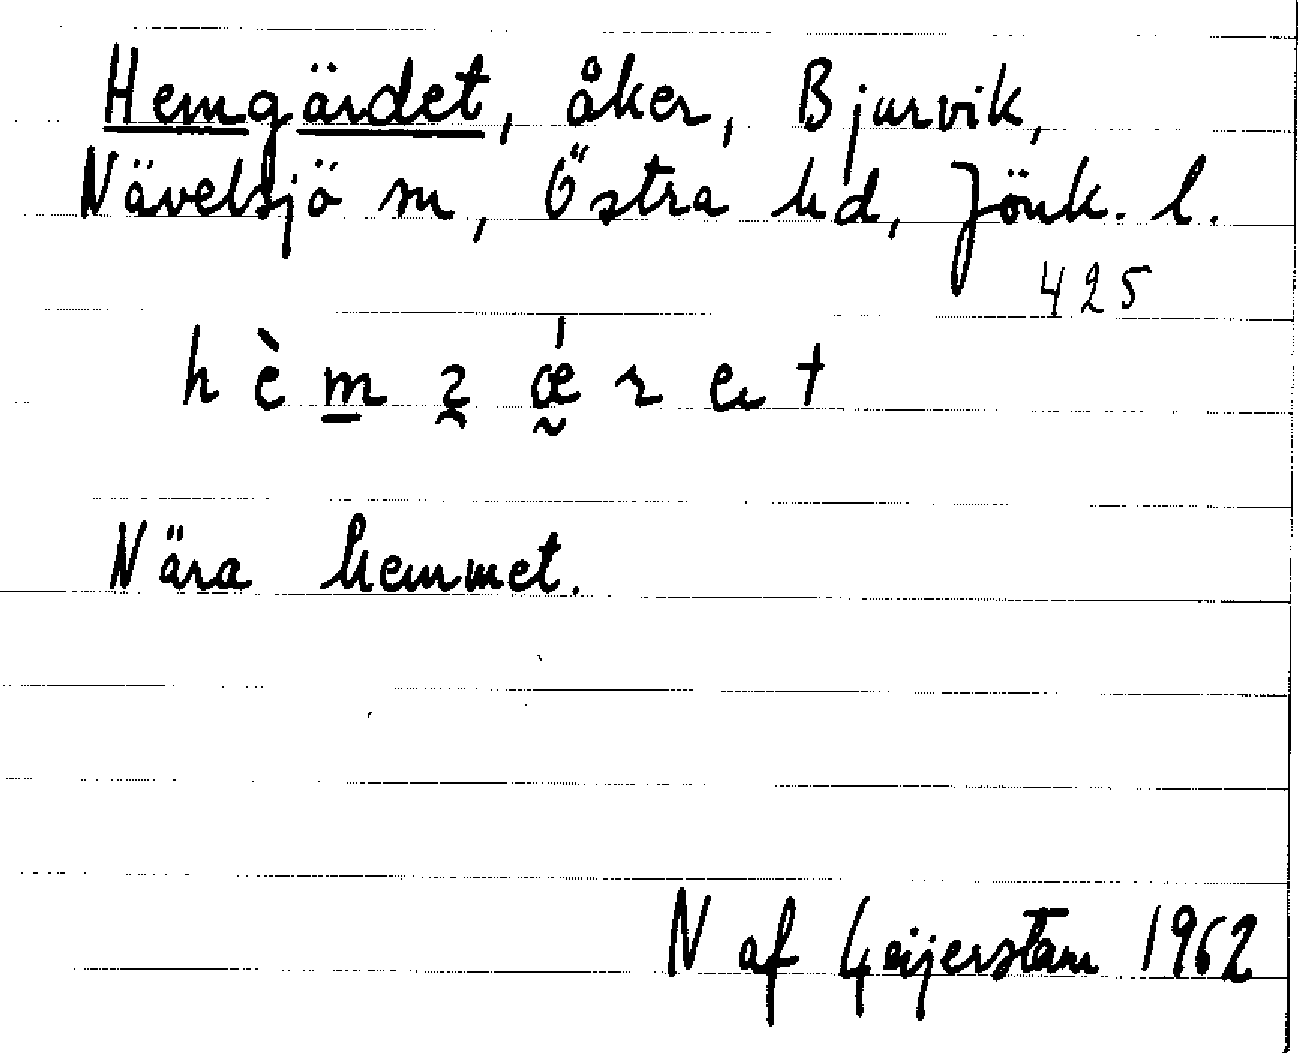 Hemgärdet, åker, Bjurvik,
Nävelsjö sn, Östra hd, Jönk. l.
425
Nära hemmet.
N af Geijerstam 1962